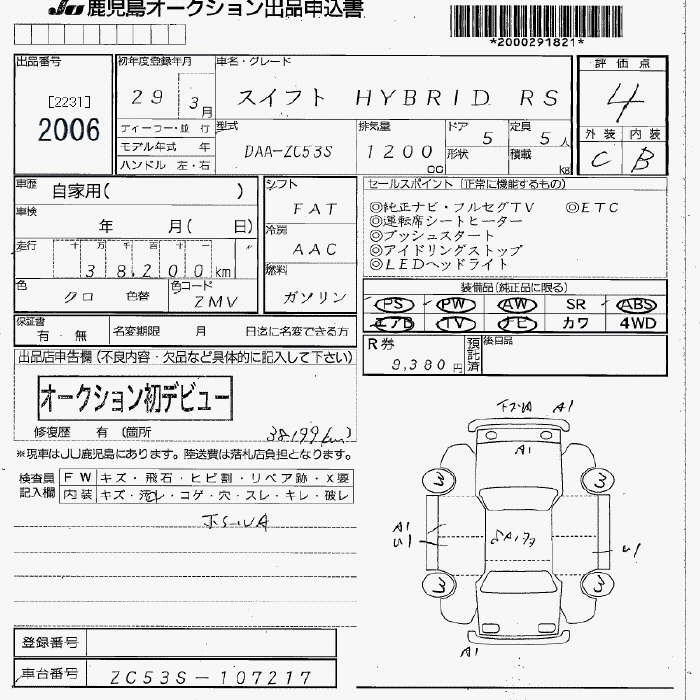 JU 鹿児島オークション出品申込書
*2000291821*
出品番号
[2231]
2006
初年度登録年月
29 3月
ディーラー・並 行
モデル年式 年
ハンドル 左・右
車名・グレード
スイフト HYBRID RS
型式
DAA-ZC53S
排気量
1200
cc
ドア 5
形状
定員 5人
積載 kg
評価点
4
外装 内装
C B
車歴 自家用( )
車検
年 月( 日)
走行 十 万 千 百 十 一
38,200km
色 クロ 色替
色コード ZMV
シフト
FAT
冷房
AAC
燃料
ガソリン
セールスポイント (正常に機能するもの)
◎純正ナビ・フルセグTV ◎ETC
◎運転席シートヒーター
◎プッシュスタート
◎アイドリングストップ
◎LEDヘッドライト
装備品(純正品に限る)
PS PW AW SR ABS
エアB TV ナビ カワ 4WD
保証書
有・無
名変期限 月 日迄に名変できる方
R券
9,380円
預託済
後日品
出品店申告欄(不良内容・欠品など具体的に記入して下さい)
オークション初デビュー
修復歴 有 (箇所 38199km)
※現車はJU鹿児島にあります。陸送費は落札店負担となります。
検査員
記入欄
FW キズ・飛石・ヒビ割・リペア跡・X要
内装 キズ・汚レ・コゲ・穴・スレ・キレ・破レ
A1
A1
3 3
A1
U1
U1
3 3
A1
登録番号
車台番号 ZC53S-107217